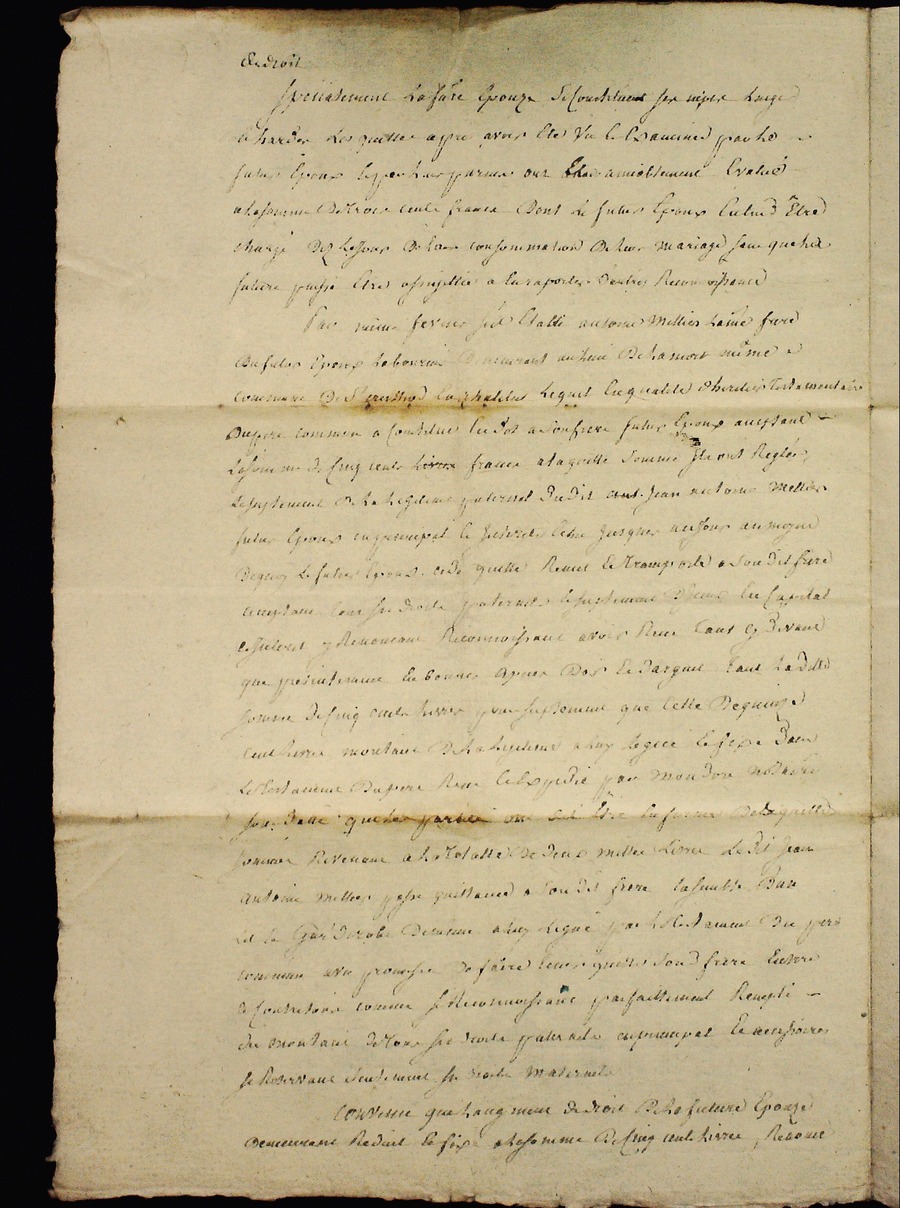 de droit
Spécialement la future Epouze se Constitue ses nipes Linge
et hardes Les quelles apres avoir été Vu et Examiné par le
futur Epoux et par leurs parens ont amiablement Evalué
a la somme de trois cents francs Dont le futur Epoux Entend Etre
chargé Des le jour de leur consommation De leur mariage sans que la
future puisse Etre assujettie a En raporter d'autres Reconnoissance
Par même fut Etabli antoine Mellier Laîné frere
Du futur Epoux Laboureur Demeurant au lieu De Lamort même
commune De St lequel En qualité d'heritier Testamentaire
Du pere commun a Constitué En Dot a son frere futur Epoux acceptant
La somme de Cinq cents francs a laquelle somme Ils ont Reglés
Le suplement De la Legitime paternel du dit Jean antoine Mellier
futur Epoux en principal et Interets Jusques au jour au moyen
De quoy Le futur Epoux cede quitte Remet et Transporte a son dit frere
acceptant tous ses droits paternels et suplement D'iceux En Capital
et Interet y Renoncant Reconnoissant avoir Recu tant cy Devant
que presentement En bonnes Especes D'or et D'argent tant La ditte
somme De Cinq cents Livres pour suplement que Celle De quinze
Cent Livres montant De la Legitime a luy Leguée et fixée Dans
Le Testament Du pere Recu et Expedié par notaire
sous datte que les parties ont dit Etre En forme De laquelle
somme Revenant a la Totalité De Deux mille Livres Le dit Jean
Antoine Mellier passe quittance a son dit frere Ensemble D'un
Lit et Garderobe a luy Legué par Le Testament Du pere
commun avec promesse De faire tenir quitte son d frere Envers
et Contre tous comme se Reconnoissant parfaittement Rempli
du montant De tous ses droits paternels en principal et accessoires
se Reservant seulement ses droits Maternels
Convenu que l'augment de droit De la future Epouze
Demeurant Reduit et fixé a la somme De Cinq cents Livres